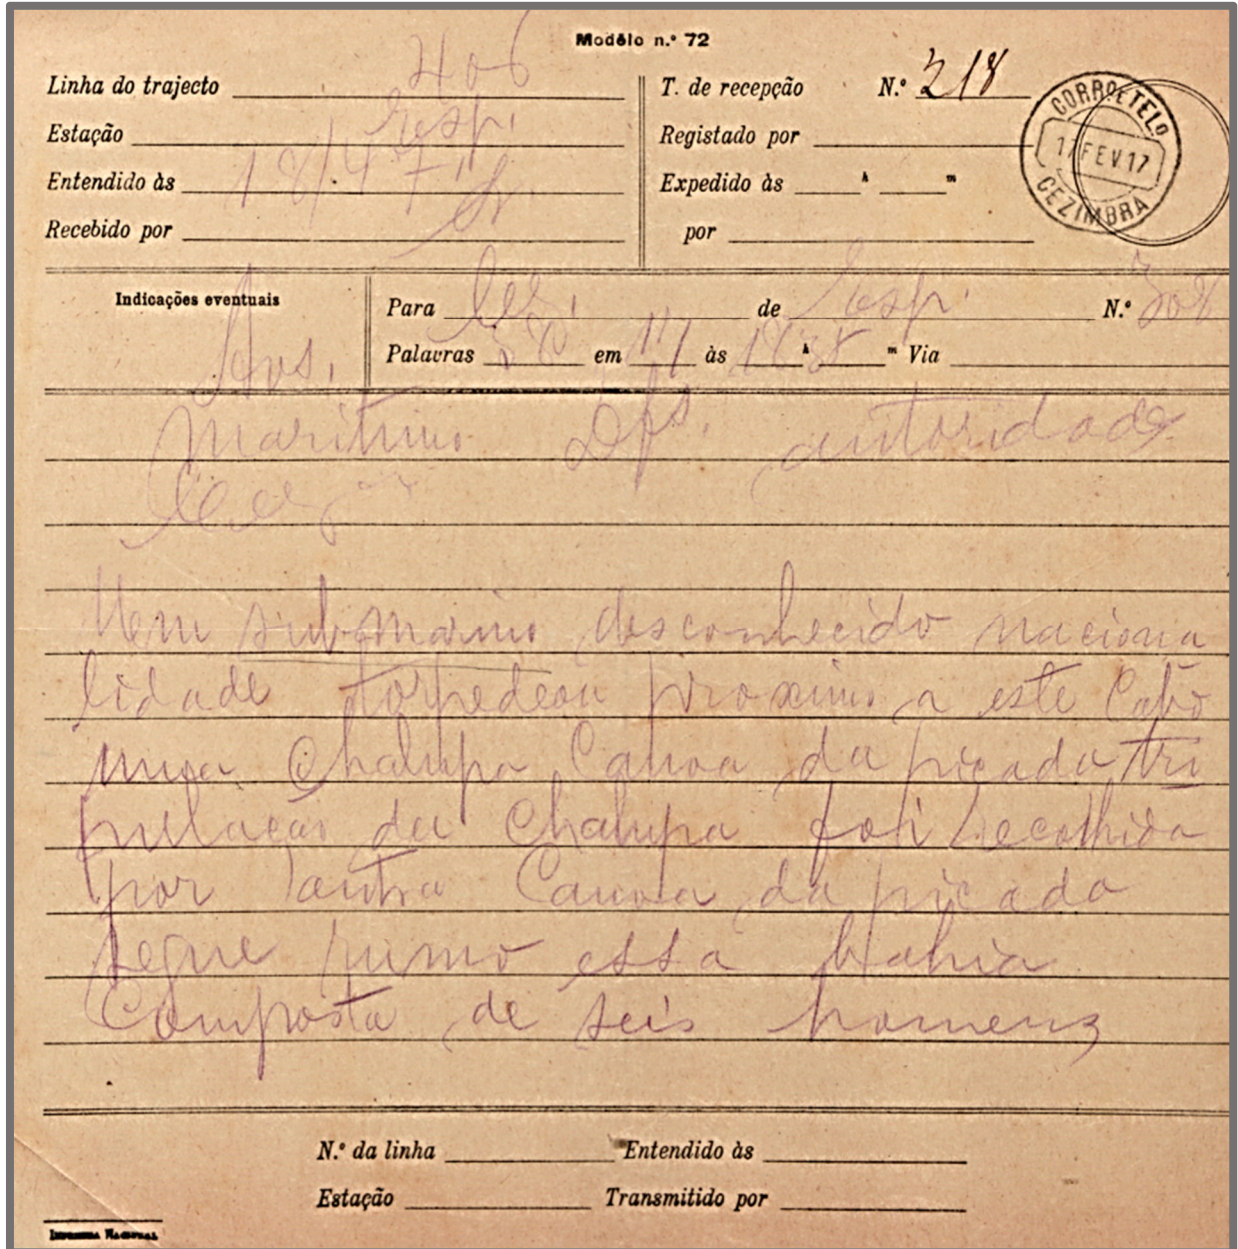 Modêlo n.º 72
Linha do trajecto 406
Estação Esp.
Entendido às 18/47
Recebido por
T. de recepção N.º 318
Registado por
Expedido às h m
por
CORRO E TELO
17 FEV 17
CEZIMBRA
Indicações eventuais
Avs.
Para Cez. de Esp. N.º
Palavras em às h m Via
Maritimo autoridade
Um submarino desconhecido naciona
lidade torpedeou proximo a este Cabo
uma Chalupa Canoa da picada tri
pulação da Chalupa foi recolhida
por outra Canoa da picada
segue rumo essa bahia
Composta de seis homens
N.º da linha Entendido às
Estação Transmitido por
IMPRENSA NACIONAL